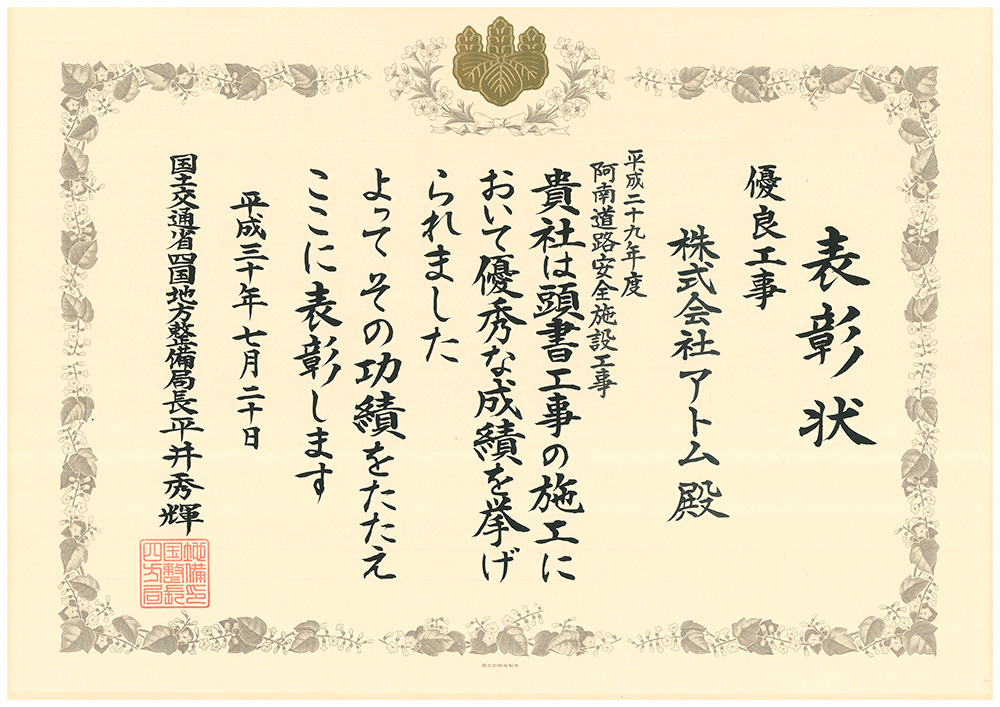 表彰状
優良工事
株式会社アトム殿
平成二十九年度
阿南道路安全施設工事
貴社は頭書工事の施工に
おいて優秀な成績を挙げ
られました
よってその功績をたたえ
ここに表彰します
平成三十年七月二十日
国土交通省四国地方整備局長平井秀輝